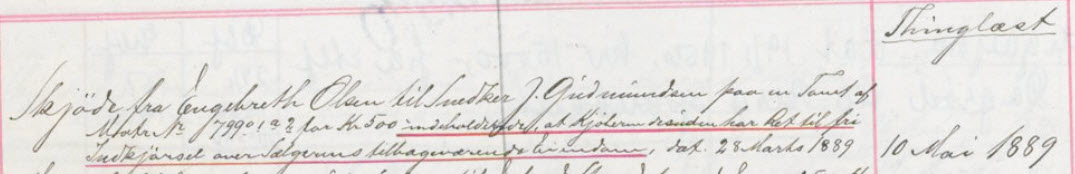 Thinglæst
Skjöde fra Engebreth Olsen til Snedker J. Gudmundsen paa en Tomt af
Matr. Nr 799 for Kr 500 indeholdende, at Kjöberen desuden har Ret til fri
Indkjörsel over Sælgerens tilbageværende Eiendom, dat. 28 Marts 1889
10 Mai 1889